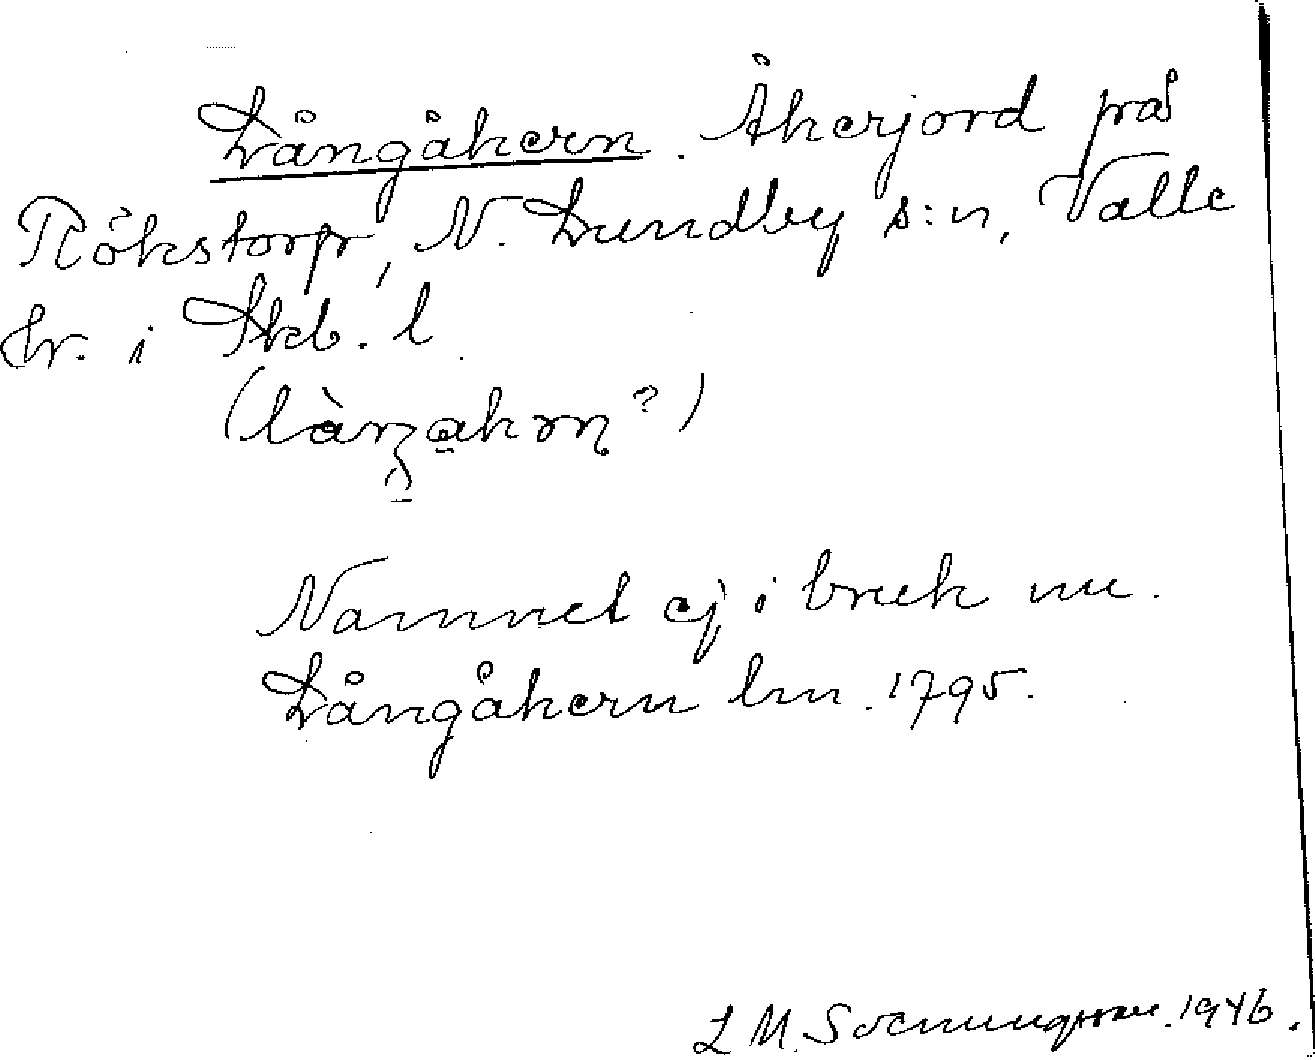 Långåkern. Åkerjord på
Rökstorp, N. Lundby s:n, Valle
hr. i Skb. l.
Namnet ej i bruk nu.
Långåkern lm. 1795.
L M. Svenungsson. 1946.